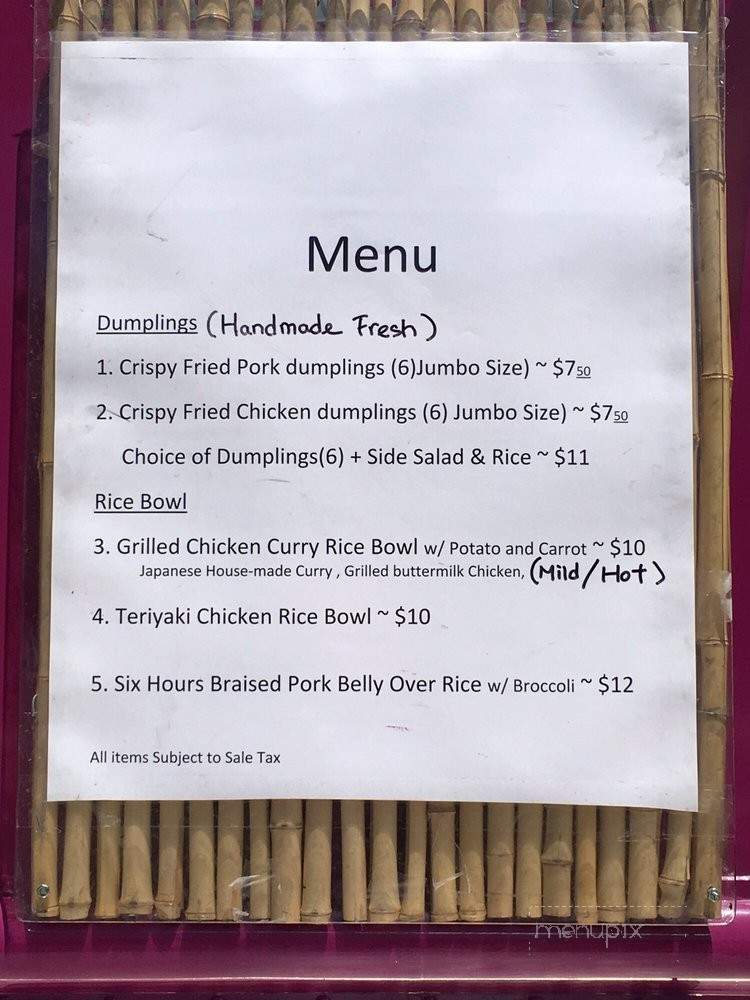 Menu
Dumplings (Handmade Fresh)
1. Crispy Fried Pork dumplings (6)Jumbo Size) ~ $750
2. Crispy Fried Chicken dumplings (6) Jumbo Size) ~ $750
Choice of Dumplings(6) + Side Salad & Rice ~ $11
Rice Bowl
3. Grilled Chicken Curry Rice Bowl w/ Potato and Carrot ~ $10
Japanese House-made Curry , Grilled buttermilk Chicken, (Mild/Hot)
4. Teriyaki Chicken Rice Bowl ~ $10
5. Six Hours Braised Pork Belly Over Rice w/ Broccoli ~ $12
All items Subject to Sale Tax
menupix